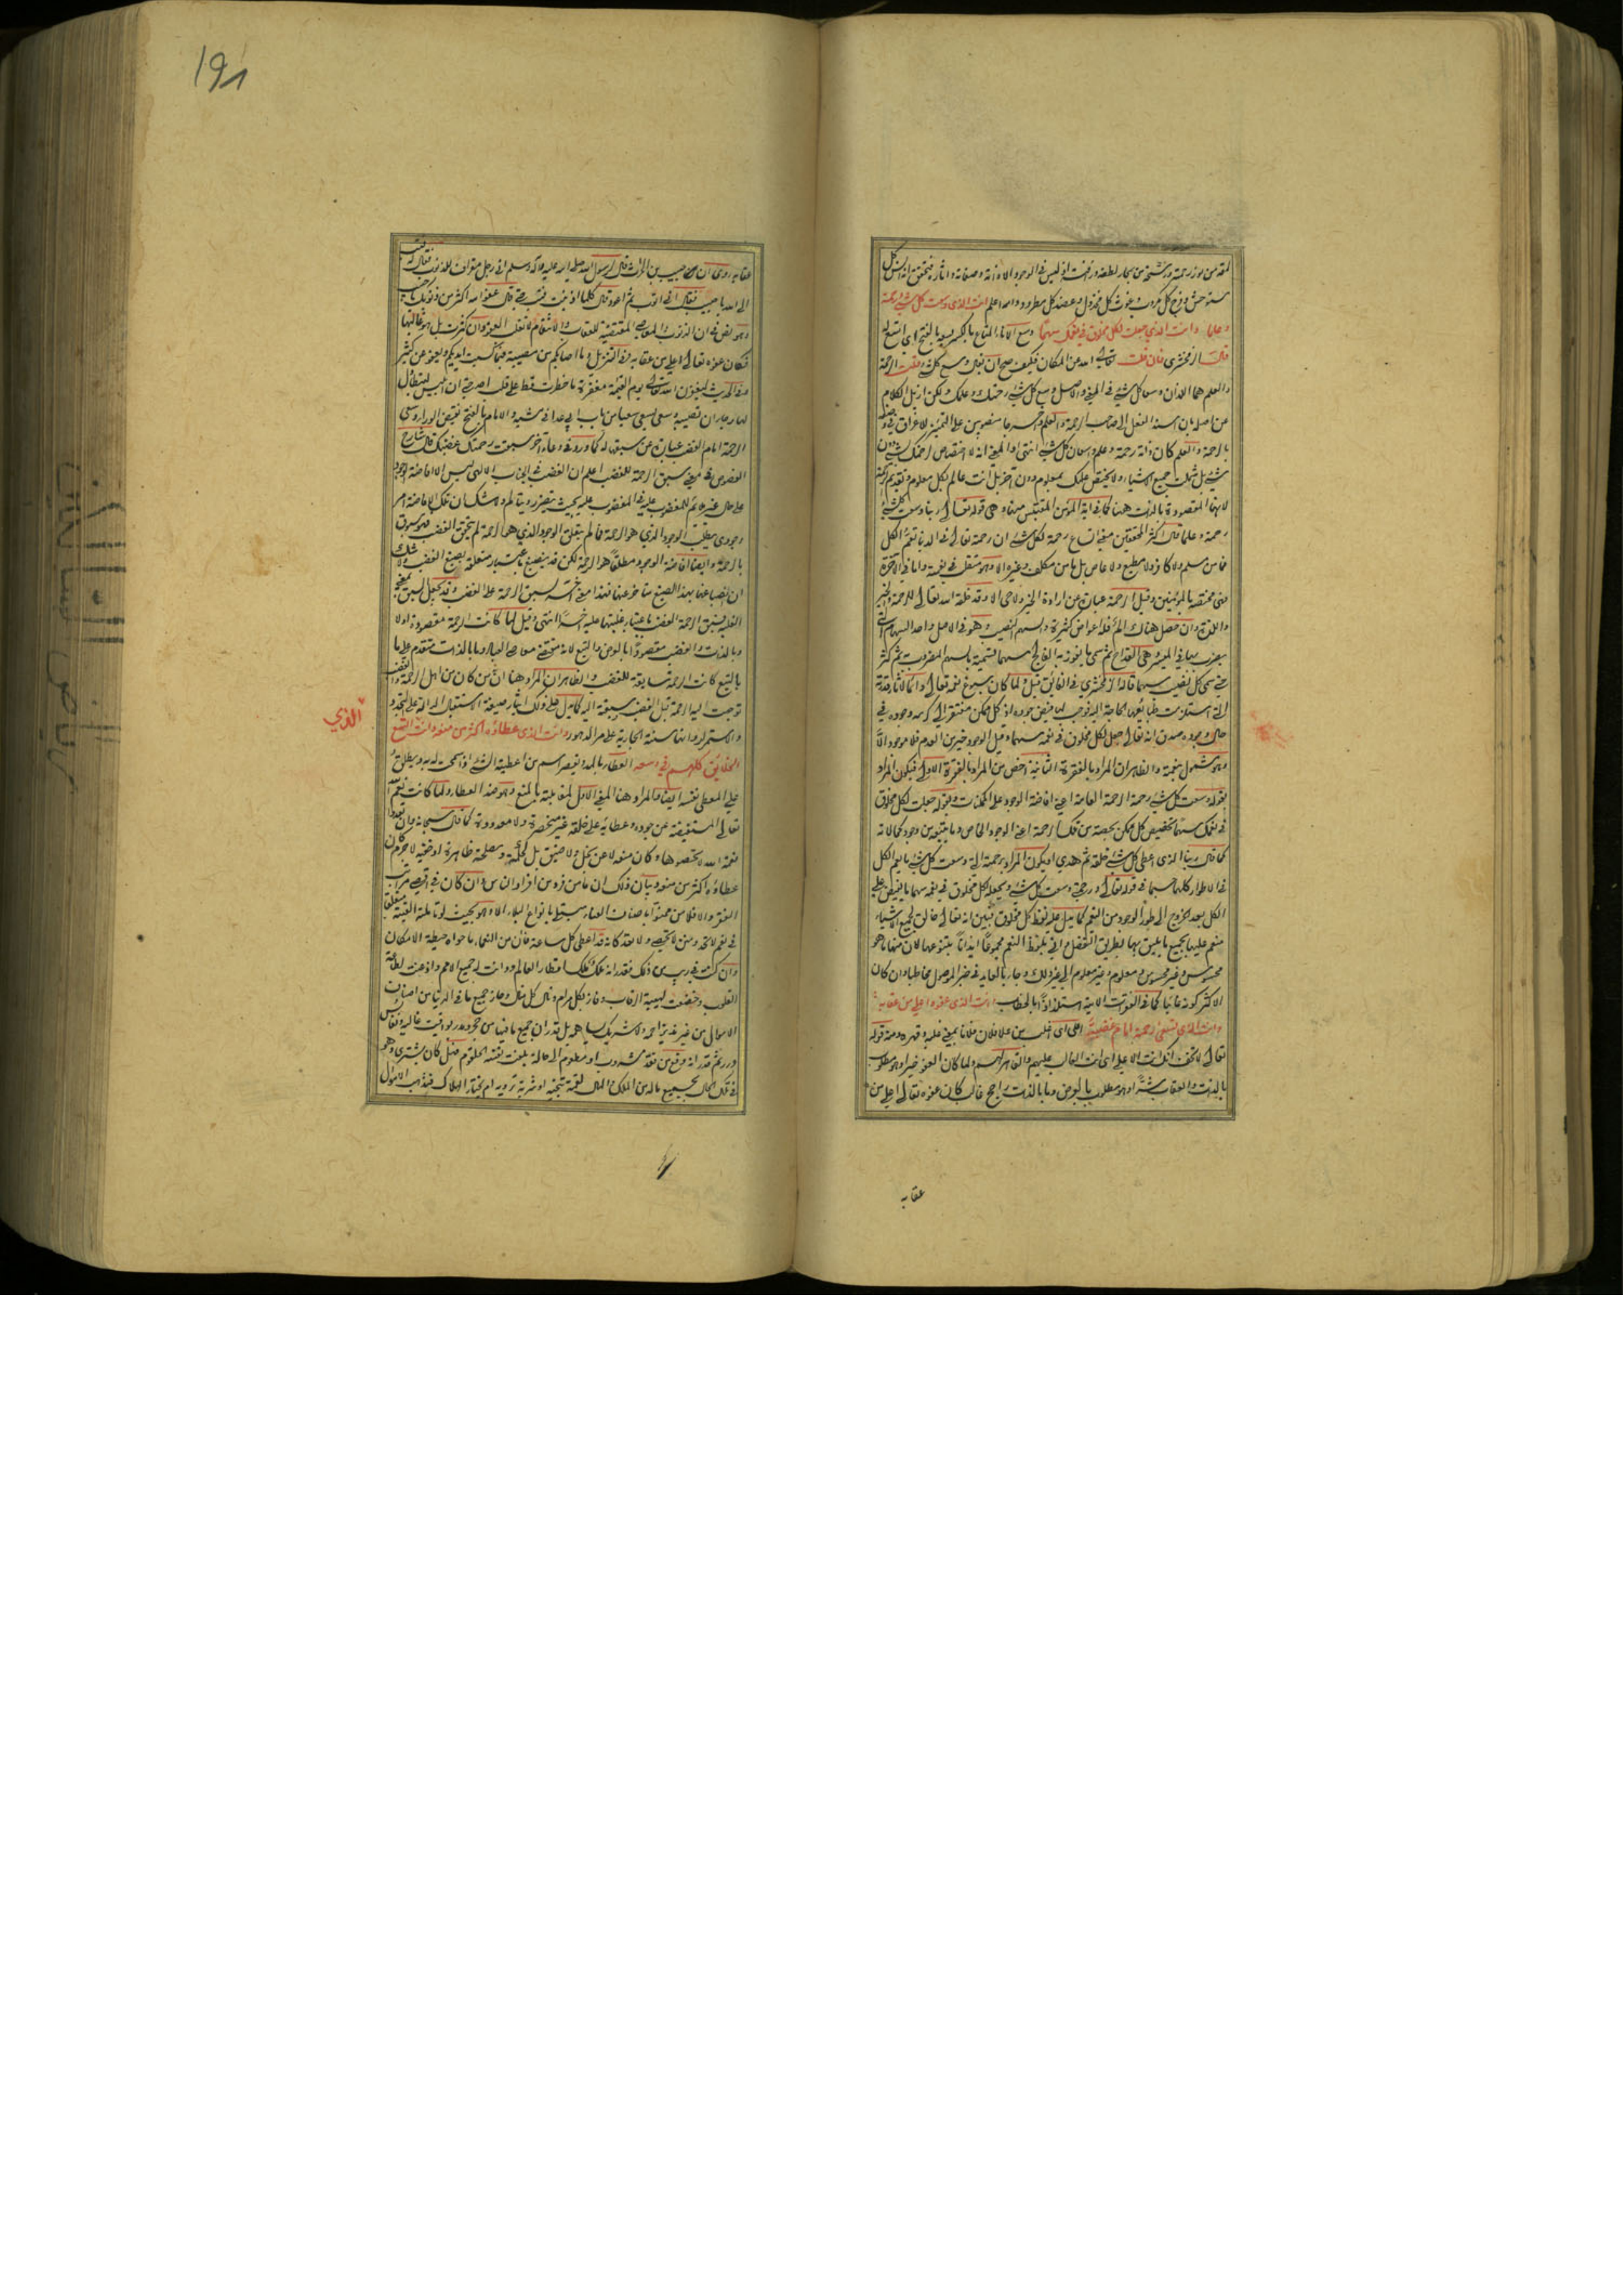 لمعة من نور رحمته ورشحة من بحار لطفه ورأفته اذ ليس في الوجود الا ذاته وصفاته واثاره فتحقق انه انس كل
مستوحش وفرج كل مكروب وغوث كل مخذول وعضد كل مطرود والله اعلم انت الذي وسعت كل شيء رحمة
وعلما وانت الذي جعلت لكل مخلوق في نعمك سهما وسع الاناء المتاع بالكسر يسعه بالفتح اي اتسع له
قال الزمخشري فان قلت تعالى الله عن المكان فكيف صح ان يقال وسع كل شيء قلت الرحمة
والعلم هما اللذان وسعا كل شيء في المعنى والاصل وسع كل شيء رحمتك وعلمك ولكن ازيل الكلام
عن اصله بان اسند الفعل الى صاحب الرحمة والعلم واخرجا منصوبين على التمييز للاغراق في وصفه
بالرحمة والعلم كان ذاته رحمة وعلم واسعان كل شيء انتهى والمعنى انه لا اختصاص لرحمتك بشيء دون
شيء بل شملت جميع الاشياء ولا يختص علمك بمعلوم دون اخر بل انت عالم بكل معلوم وتقديم الرحمة
لانها المقصودة بالذات ههنا كما في اية المؤمن المقتبس منها وهي قوله تعالى ربنا وسعت كل شيء
رحمة وعلما قال اكثر المحققين معنى اتساع رحمته لكل شيء ان رحمته تعالى في الدنيا تعم الكل
فما من مسلم ولا كافر ولا مطيع ولا عاص بل ما من مكلف وغيره الا وهو متقلب في نعمته واما في الاخرة
فهي مختصة بالمؤمنين وقيل الرحمة عبارة عن ارادة الخير ولا حي الا وقد خلقه الله تعالى للرحمة والخير
واللذة وان حصل هناك الم فله اعواض كثيرة والسهم النصيب وهو في الاصل واحد السهام التي
يضرب بها في الميسر وهي القداح ثم سمي ما يفوز به الفالج سهما تسمية بالسهم المضروب به ثم كثر
حتى سمي كل نصيب سهما قاله الزمخشري في الفائق قيل ولما كان سبوغ نعمه تعالى دائما لاثار قدرته
التي استلزمت طبائعها الحاجة اليه فوجب لها فيض جوده اذ كل ممكن مفتقر الى كرمه وجوده في
حال وجوده صدق انه تعالى جعل لكل مخلوق في نعمه سهما وقيل الوجود خير من العدم فلا موجود الا
وهو مشمول بنعمته والظاهر ان المراد بالفقرة الثانية اخص من المراد بالفقرة الاولى فيكون المراد
بقوله وسعت كل شيء رحمة الرحمة العامة اعني افاضة الوجود على الممكنات وبقوله جعلت لكل مخلوق
في نعمك سهما تخصيص كل ممكن بحصته من تلك الرحمة اعني الوجود الخاص وما يتبعه من وجود كمالاته
كما قال ربنا الذي اعطى كل شيء خلقه ثم هدى او يكون المراد برحمته التي وسعت كل شيء ما يعم الكل
في الاطوار كلها حسبما في قوله تعالى ورحمتي وسعت كل شيء وبجعله لكل مخلوق في نعمه سهما ما يفيض على
الكل بعد الخروج الى طور الوجود من النعم كما يدل عليه لفظ كل مخلوق فتبين انه تعالى خالق لجميع الاشياء
منعم عليها بجميع ما يليق بها بطريق التفضل اتى بلفظ النعم مجموعا ايذانا بتنوعها لان منها ما هو
محسوس وغير محسوس ومعلوم وغير معلوم الى غير ذلك وجاء بالعايد في خبر الموصول مخاطبا وان كان
الاكثر كونه غائبا كما في الفقرات الاتية استلذاذا بالخطاب انت الذي عفوه اعلى من عقابه
وانت الذي تسعى رحمته امام غضبه اعلى اي اغلب من علا فلان فلانا بمعنى غلبه وقهره ومنه قوله
تعالى لا تخف انك انت الاعلى اي انت الغالب عليهم والقاهر لهم ولما كان العفو خيرا وهو مطلوب
بالذات والعقاب شرا وهو مطلوب بالعرض وما بالذات راجح غالب كان عفوه تعالى اعلى من
عقابه
١٩٨
عقابه روي ان حبيب بن الحرث قال لرسول الله صلى الله عليه وآله وسلم اني رجل مقراف للذنوب فقال له فتب
الى الله يا حبيب فقال اني اتوب ثم اعود قال كلما اذنبت فتب حتى قال عفو الله اكثر من ذنوبك يا حبيب
وهو نص في ان الذنوب والمعاصي المقتضية للعقاب والانتقام لا تغلب العفو وان كثرت بل هو غالبها
فكان عفوه تعالى اعلى من عقابه وفي التنزيل وما اصابكم من مصيبة فبما كسبت ايديكم ويعفو عن كثير
وفي الحديث ليغفرن الله تعالى يوم القيمة مغفرة ما خطرت قط على قلب احد حتى ان ابليس ليتطاول
لها رجاء ان تصيبه وسعى يسعى سعيا من باب ابي عدا في مشيه والامام بالفتح نقيض الوراء وسعي
الرحمة امام الغضب عبارة عن سبقها له كما ورد في دعاء اخر سبقت رحمتك غضبك قال شارح
الفصوص في معنى سبق الرحمة للغضب اعلم ان الغضب في الجناب الالهي ليس الا افاضة الوجود
على حال غير ملائم للمغضوب عليه في المغضوب عليه بحيث يتضرر ويتالم ولا شك ان تلك الافاضة امر
وجودي يطلب الوجود الذي هو الرحمة فما لم يتعلق الوجود الذي هو الرحمة لم يتحقق الغضب فهو مسبوق
بالرحمة وايضا افاضة الوجود مطلقا هو الرحمة لكن قد ينصبغ باعتبار متعلقه بصبغ الغضب ولا شك
ان انصباغها بهذا الصبغ متاخر عنها فهذا معنى اخر لسبق الرحمة على الغضب وقد يجعل السبق بمعنى
الغلبة فسبق الرحمة الغضب باعتبار غلبتها عليه اخرا انتهى وقيل لما كانت الرحمة مقصودة اولا
وبالذات والغضب مقصودا بالعرض والتبع لانه مقتضى معاصي العباد وما بالذات متقدم على ما
بالتبع كانت الرحمة سابقة للغضب والظاهر ان المراد هنا ان من كان من اهل الرحمة والغضب
توجهت اليه الرحمة قبل الغضب بسبقه اليه كما يدل على ذلك ايثار صيغة الاستقبال الدالة على التجدد
والاستمرار وانها سنته الجارية على مر الدهور وانت الذي عطاؤه اكثر من منعه وانت اتسع
الذي
الخلائق كلهم في وسعه العطاء بالمد ويقصر اسم من اعطيته الشيء اذا سمحت له به ويطلق
على المعطى نفسه ايضا والمراد هنا المعنى الاول لمقابلته بالمنع وهو ضد العطاء ولما كانت نعم الله
تعالى المستفيضة عن جوده وعطاياه على خلقه غير منحصرة ولا معدودة كما قال سبحانه وان تعدوا
نعمة الله لا تحصوها وكان منعه لا عن بخل ولا ضيق بل لحكمة ومصلحة ظاهرة او خفية لا جرم كان
عطاؤه اكثر من منعه وبيان ذلك ان ما من فرد من افراد انسان وان كان في اقصى مراتب
الفقر والافلاس ممنوا باصناف العناء مبتلى بانواع البلاء الا وهو بحيث لو تاملته الفيته متقلبا
في نعم لا تحد ومنن لا تحصى ولا تعد كانه قد اعطي كل ساعة وآن من النعماء ما حواه حيطة الامكان
وان كنت في ريب من ذلك فقدر انه ملك ملك اقطار العالم ودانت له جميع الامم واذعنت لطاعته
القلوب وخضعت لهيبته الرقاب وفاز بكل مرام ونال كل منال وحاز جميع ما في الدنيا من اصناف
الاموال من غير ند يزاحمه ولا شريك يساهمه بل قدر ان جميع ما فيها من حجر ومدر يواقيت غالية ونفائس
درر ثم قدر انه وقع من فقد مشروب او مطعوم الى حالة بلغت نفسه الحلقوم فهل كان يشتري وهو
في تلك الحال بجميع ماله من الملك والمال لقمة تنجيه او شربة ترويه ام يختار الهلاك فتذهب الاموال